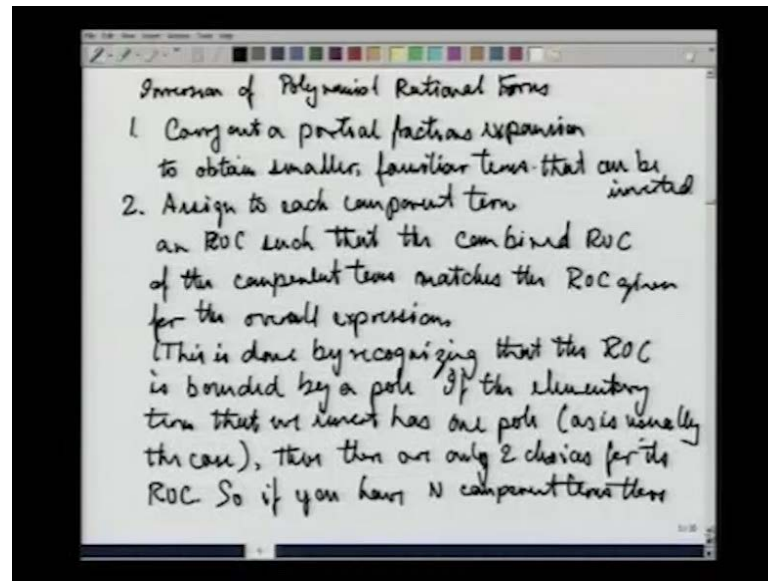 Inversion of Polynomial Rational Forms
1. Carry out a partial fractions expansion
to obtain smaller, familiar terms that can be
inverted
2. Assign to each component term
an ROC such that the combined ROC
of the component terms matches the ROC given
for the overall expression.
(This is done by recognizing that the ROC
is bounded by a pole If the elementary
term that we invert has one pole (as is usually
the case), then there are only 2 choices for its
ROC. So if you have N component terms there